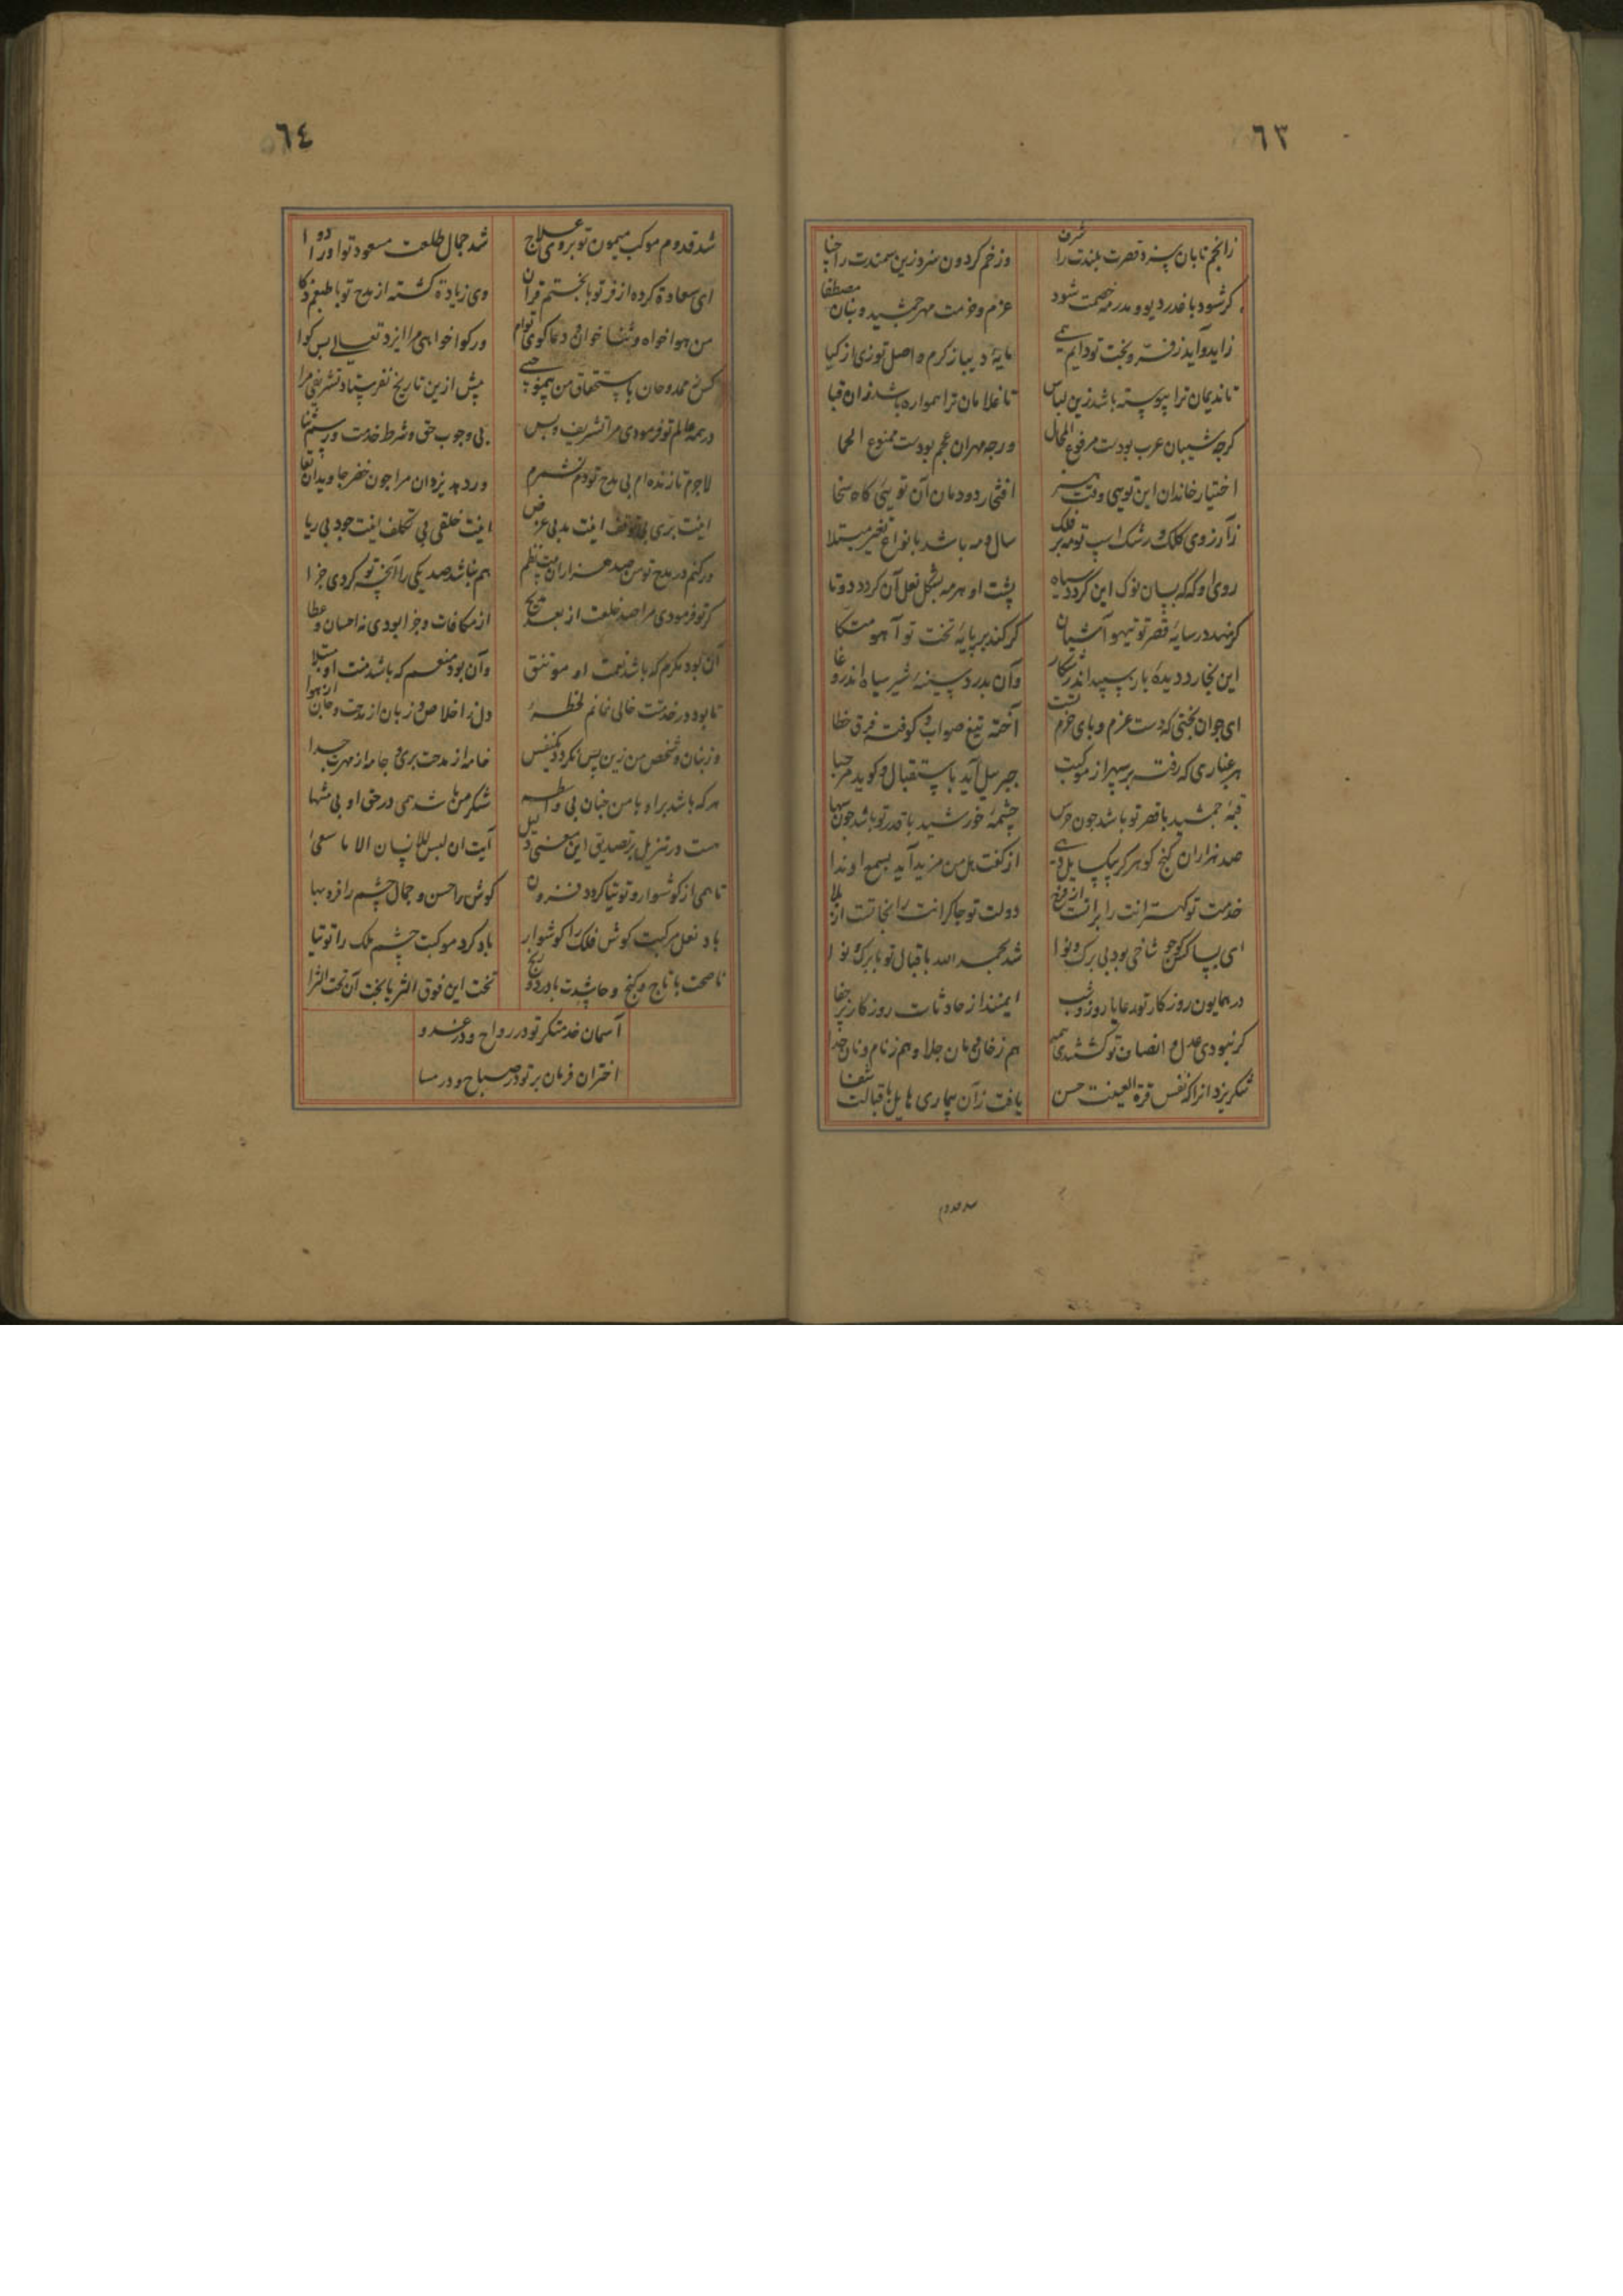 ٦٣
زانجم تابان سزد قصرت بلندت را شرف
وز خم کردون سزد زین سمندت را حنا
کر شود با غدر دیو و مدر مه خصمت شود
عزم و حزمت مهر جمشید و بنان مصطفا
زاید و آید ز فر و بخت تو دایم همی
مایهٔ دیبا ز کرم و اصل توزی از کیا
تا ندیمان ترا پیوسته باشد زین لباس
تا غلامان ترا همواره باشد زان قبا
کرجه شیبان عرب بودست مرفوع المحال
ورجه مهران عجم بودست ممنوع الحما
اختیار خاندان این تویی وقت هنر
افتخار دودمان آن تویی کاه سخا
زآرزوی کلک و رشک اسپ تو مه بر فلک
سال و مه باشد بانواع تغیر مبتلا
روی او که که بسان نوک این کردد سیاه
پشت او هر مه بشکل نعل آن کردد دوتا
کر نهد در سایهٔ قصر تو تیهو آشیان
کر کند بر پایهٔ تخت تو آهو متکا
این نخارد دیدهٔ باز سپید اندر شکار
وآن بدرد سینهٔ شیر سیاه اندر وغا
ای جوان بختی که دست عزم و پای حزم تست
آخته تیغ صواب و کوفته فرق خطا
هر غباری که رفت بر سپهر از موکبت
جبرییل آید باستقبال و کوید مرحبا
قبهٔ جمشید با قصر تو باشد جون خرس
چشمهٔ خورشید با قدر تو باشد جون سها
صد هزاران کنج کوهر کر بیک سایل دهی
از کفت هل من مزید آید بسمع او ندا
خدمت تو کهترانت را براتست از فرج
دولت تو جاکرانت را نجاتست از بلا
ای بسا کس کو جو شاخی بود بی برک و نوا
شد بحمد الله باقبال تو با برک و نوا
در همایون روزکار تو رعایا روز و شب
ایمنند از حادثات روزکار پر جفا
کر نبودی عدل و انصاف تو کشتندی همه
هم ز خان و مان جلا و هم ز نام و نان جدا
شکر یزدانرا که نفس قرة العینت حسن
یافت زآن بیماری هایل باقبالت شفا
شد قدوم
٦٤
شد قدوم موکب میمون تو بر وی علاج
شد جمال طلعت مسعود تو او را دوا
ای سعادة کرده از فر تو با بختم قران
وی زیادة کشته از مدح تو با طبعم ذکا
من هوا خواه و ثنا خوان و دعا کوی توام
ور کوا خواهی مرا ایزد تعالی بس کوا
کس ز ممدوحان باستحقاق من بی موجبی
پیش از این تاریخ نفرستاد تشریفی مرا
در همه عالم تو فرمودی مرا تشریف و بس
بی وجوب حق و شرط خدمت و رسم ثنا
لاجرم تا زنده ام بی مدح تو دم نشمرم
ور دهد یزدان مرا جون خضر جاویدان بقا
اینت بری بی توقف اینت مدی بی غرض
اینت خلقی بی تکلف اینت جود بی ریا
ور کنم در مدح تو من صد هزاران بیت نظم
هم نباشد صد یکی را زانچه تو کردی جزا
کر تو فرمودی مرا صد خلعت از بعد مدیح
از مکافات و جزا بودی نه احسان و عطا
آن بود مکرم که باشد نعمت او موتنق
وآن بود منعم که باشد منت او مبتلا
تا بود در خدمتت خالی نمانم لحظهٔ
دل ز اخلاص و زبان از مدحت و جان از هوا
وز بنان و شخص من زین پس نکردد یکنفس
خامه از مدحت بری و جامه از مهرت جدا
هر که باشد بر او با من جنان بی واسطه
شکر من باشد همی در حق او بی منتها
هست در تنزیل بر تصدیق این معنی دلیل
آیت ان لیس للانسان الا ما سعیٰ
تا همی از کوشوار و توتیا کردد فزون
کوش را حسن و جمال و چشم را فر و بها
باد نعل مرکبت کوش فلک را کوشوار
باد کرد موکبت چشم ملک را توتیا
ناصحت با تاج و کنج و حاسدت با درد و رنج
تخت این فوق الثریا بخت آن تحت الثرا
آسمان خدمتکر تو در رواح و در غدو
اختران فرمان بر تو در صباح و در مسا